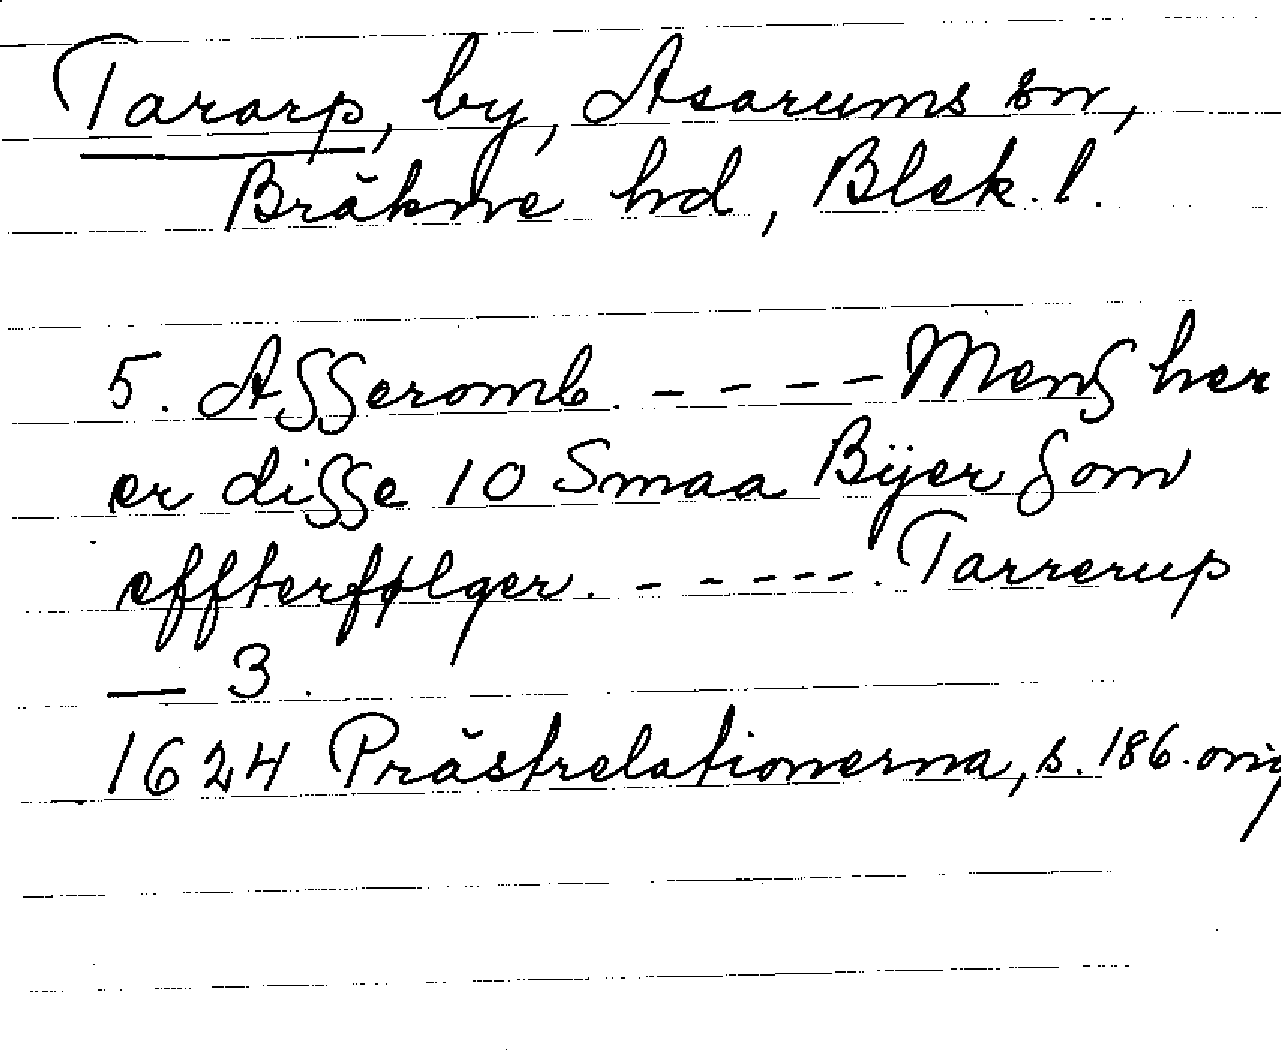 Tararp, by, Asarums sn,
Bräkne hd, Blek. l.
5. Aſſeromb. - - - - Menſ her
er diſſe 10 Smaa Bÿer ſom
effterfølger. - - - - - . Tarrerup
— 3.
1624 Prästrelationerna, s. 186. orig